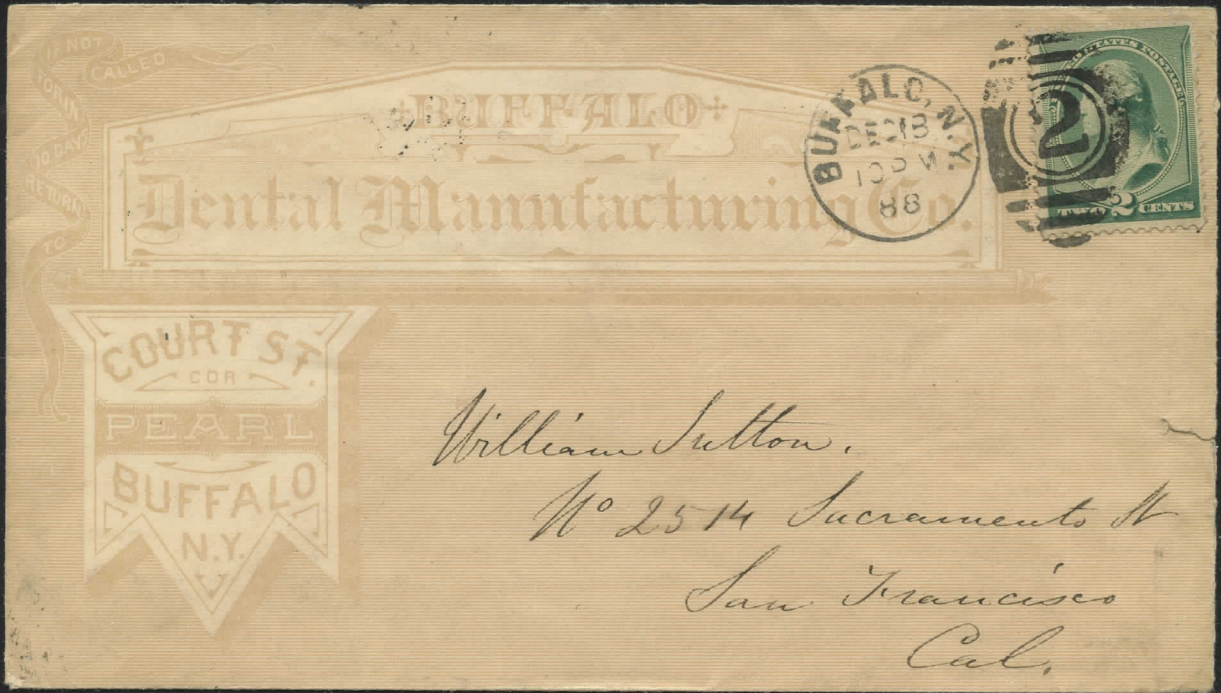 IF NOT
CALLED
FOR IN
10 DAYS
RETURN
TO
BUFFALO
Dental Manufacturing Co.
COURT ST.
COR
PEARL
BUFFALO
N.Y.
BUFFALO, N.Y.
DEC 18
10 P M
88
2
STATES POSTAGE
TWO 2 CENTS
William Sutton.
No 2514 Sacramento St
San Francisco
Cal.